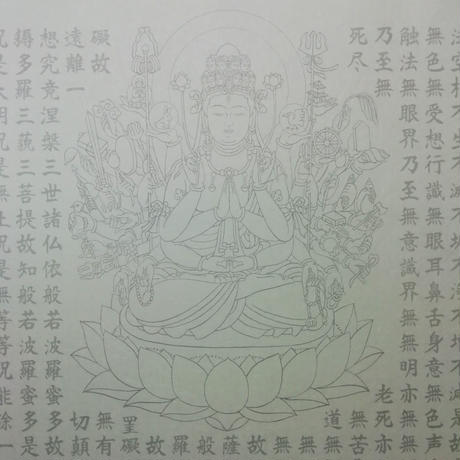 法空相不生不滅不垢不浄不増不減是故
無色無受想行識無眼耳鼻舌身意無色声
触法無眼界乃至無意識界無無明亦無
乃至無
老死亦
死尽
無苦
道
無
無
無
故
薩
般
羅
故
罣礙
礙故
無有
遠離一
切顛
想究竟涅槃三世諸仏依般若波羅蜜多故
耨多羅三藐三菩提故知般若波羅蜜多是
呪是大明呪是無上呪是無等等呪能除一